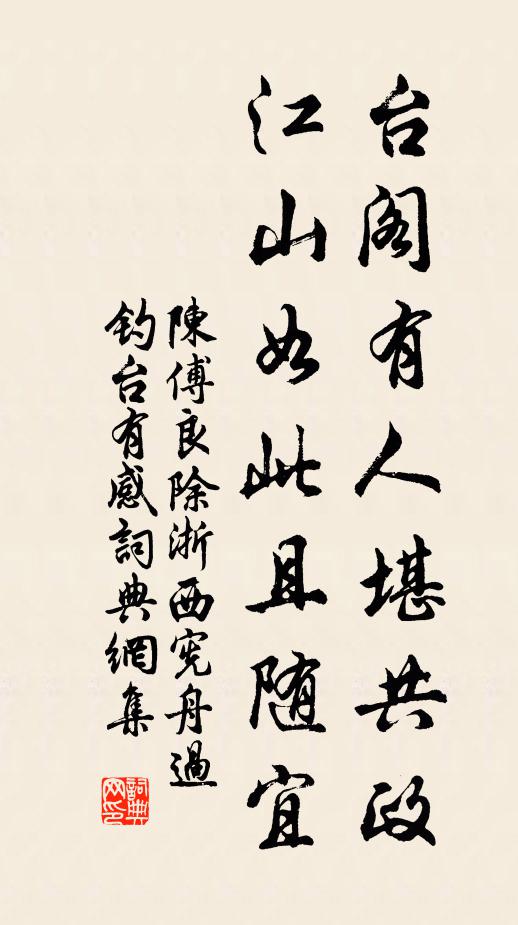 台阁有人堪共政
江山如此且随宜
陳傅良除浙西宪舟過
钓台有感詞典網集
詞典网印